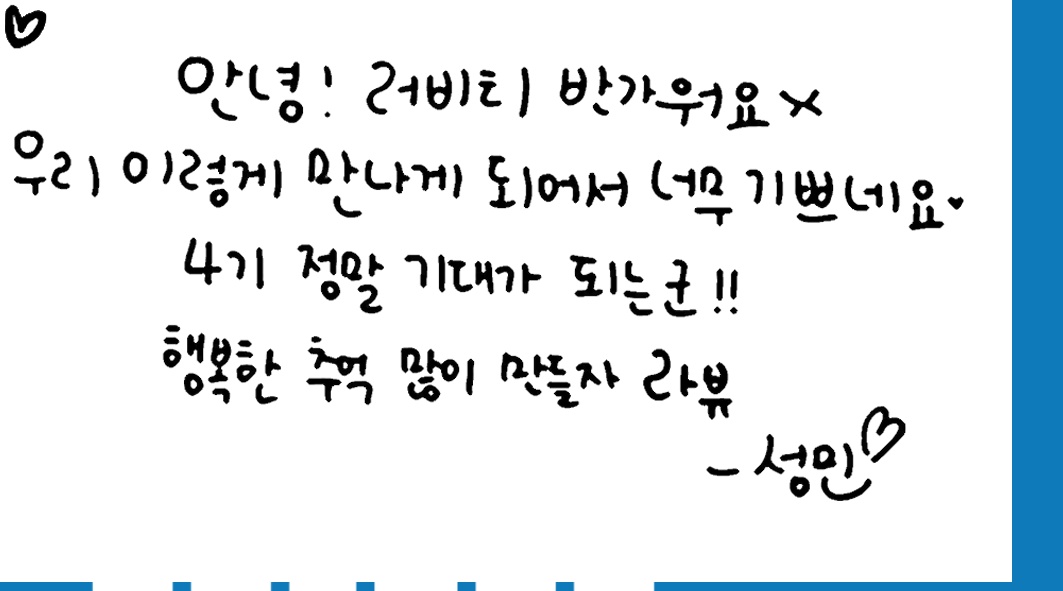 안녕! 러비티 반가워요×
우리 이렇게 만나게 되어서 너무 기쁘네요♥
4기 정말 기대가 되는군!!
행복한 추억 많이 만들자 라뷰
- 성민♡